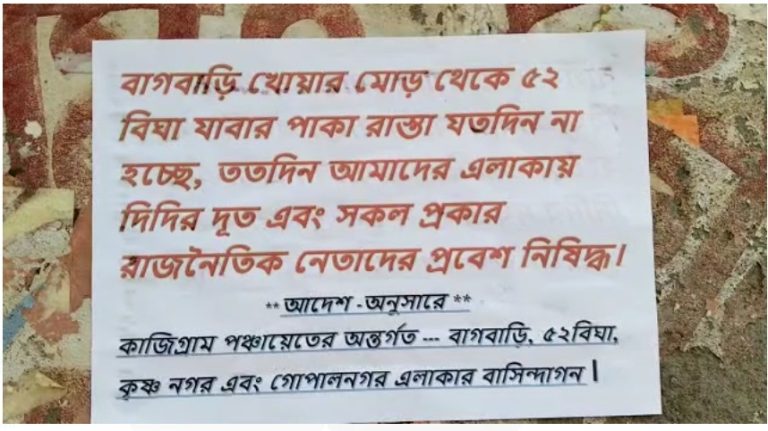 বাগবাড়ি খোয়ার মোড় থেকে ৫২
বিঘা যাবার পাকা রাস্তা যতদিন না
হচ্ছে, ততদিন আমাদের এলাকায়
দিদির দূত এবং সকল প্রকার
রাজনৈতিক নেতাদের প্রবেশ নিষিদ্ধ।
** আদেশ -অনুসারে **
কাজিগ্রাম পঞ্চায়েতের অন্তর্গত --- বাগবাড়ি, ৫২বিঘা,
কৃষ্ণ নগর এবং গোপালনগর এলাকার বাসিন্দাগন।